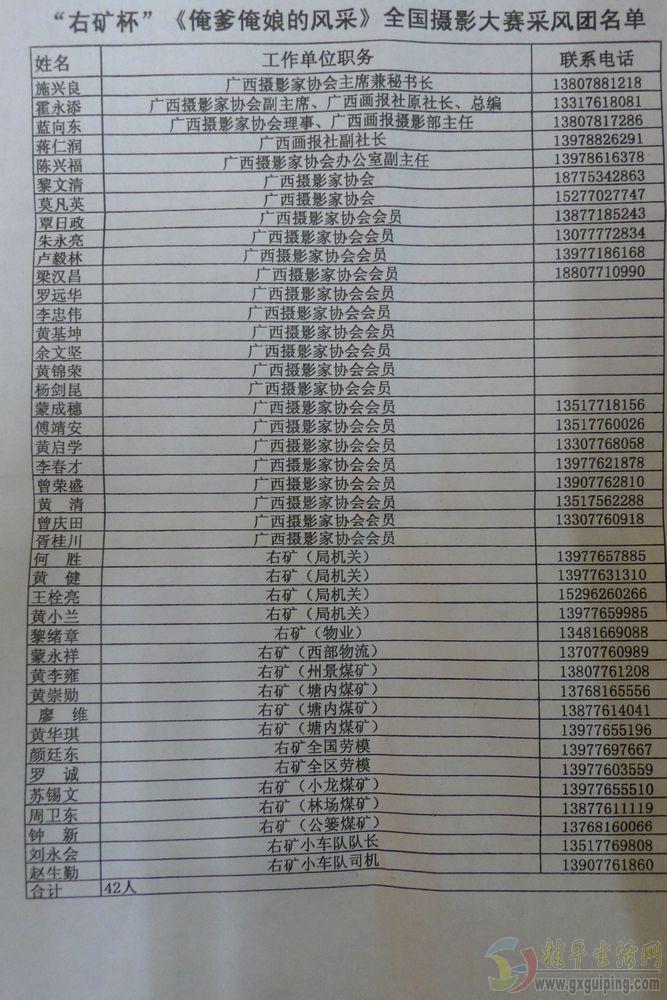 “右矿杯”《俺爹俺娘的风采》全国摄影大赛采风团名单
姓名 工作单位职务 联系电话
施兴良 广西摄影家协会主席兼秘书长 13807881218
霍永添 广西摄影家协会副主席、广西画报社原社长、总编 13317618081
蓝向东 广西摄影家协会理事、广西画报摄影部主任 13807817286
蒋仁润 广西画报社副社长 13978826291
陈兴福 广西摄影家协会办公室副主任 13978616378
黎文清 广西摄影家协会 18775342863
莫凡英 广西摄影家协会 15277027747
覃日政 广西摄影家协会会员 13877185243
朱永亮 广西摄影家协会会员 13077772834
卢毅林 广西摄影家协会会员 13977186168
梁汉昌 广西摄影家协会会员 18807710990
罗远华 广西摄影家协会会员
李忠伟 广西摄影家协会会员
黄基坤 广西摄影家协会会员
余文坚 广西摄影家协会会员
黄锦荣 广西摄影家协会会员
杨剑昆 广西摄影家协会会员
蒙成穗 广西摄影家协会会员 13517718156
傅靖安 广西摄影家协会会员 13517760026
黄启学 广西摄影家协会会员 13307768058
李春才 广西摄影家协会会员 13977621878
曾荣盛 广西摄影家协会会员 13907762810
黄 清 广西摄影家协会会员 13517562288
曾庆田 广西摄影家协会会员 13307760918
胥桂川 广西摄影家协会会员
何 胜 右矿（局机关） 13977657885
黄 健 右矿（局机关） 13977631310
王栓亮 右矿（局机关） 15296260266
黄小兰 右矿（局机关） 13977659985
黎绪章 右矿（物业） 13481669088
蒙永祥 右矿（西部物流） 13707760989
黄李雍 右矿（州景煤矿） 13807761208
黄崇勋 右矿（塘内煤矿） 13768165556
廖 维 右矿（塘内煤矿） 13877614041
黄华琪 右矿（塘内煤矿） 13977655196
颜廷东 右矿全国劳模 13977697667
罗 诚 右矿全区劳模 13977603559
苏锡文 右矿（小龙煤矿） 13977655510
周卫东 右矿（林场煤矿） 13877611119
钟 新 右矿（公篓煤矿） 13768160066
刘永会 右矿小车队队长 13517769808
赵生勤 右矿小车队司机 13907761860
合计 42人
桂平生活网
www.gxguiping.com